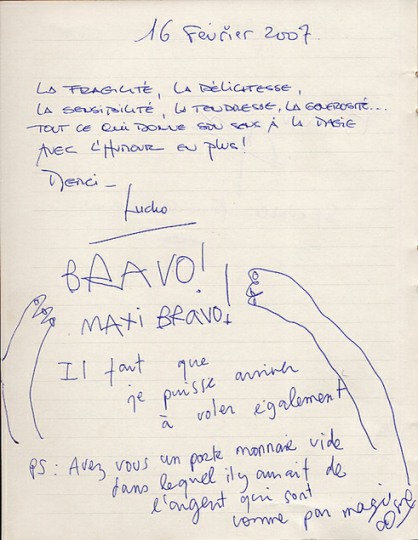 16 Février 2007
LA FRAGILITÉ, LA DÉLICATESSE,
LA SENSIBILITÉ, LA TENDRESSE, LA GÉNÉROSITÉ...
TOUT CE QUI DONNE SON SENS À LA MAGIE
AVEC L'HUMOUR EN PLUS!
MERCI -
BRAVO!
MAXI BRAVO!
Il faut que
je puisse arriver
à voler également
PS: Avez vous un porte monnaie vide
dans lequel il y aurait de
l'argent qui sort
comme par magie